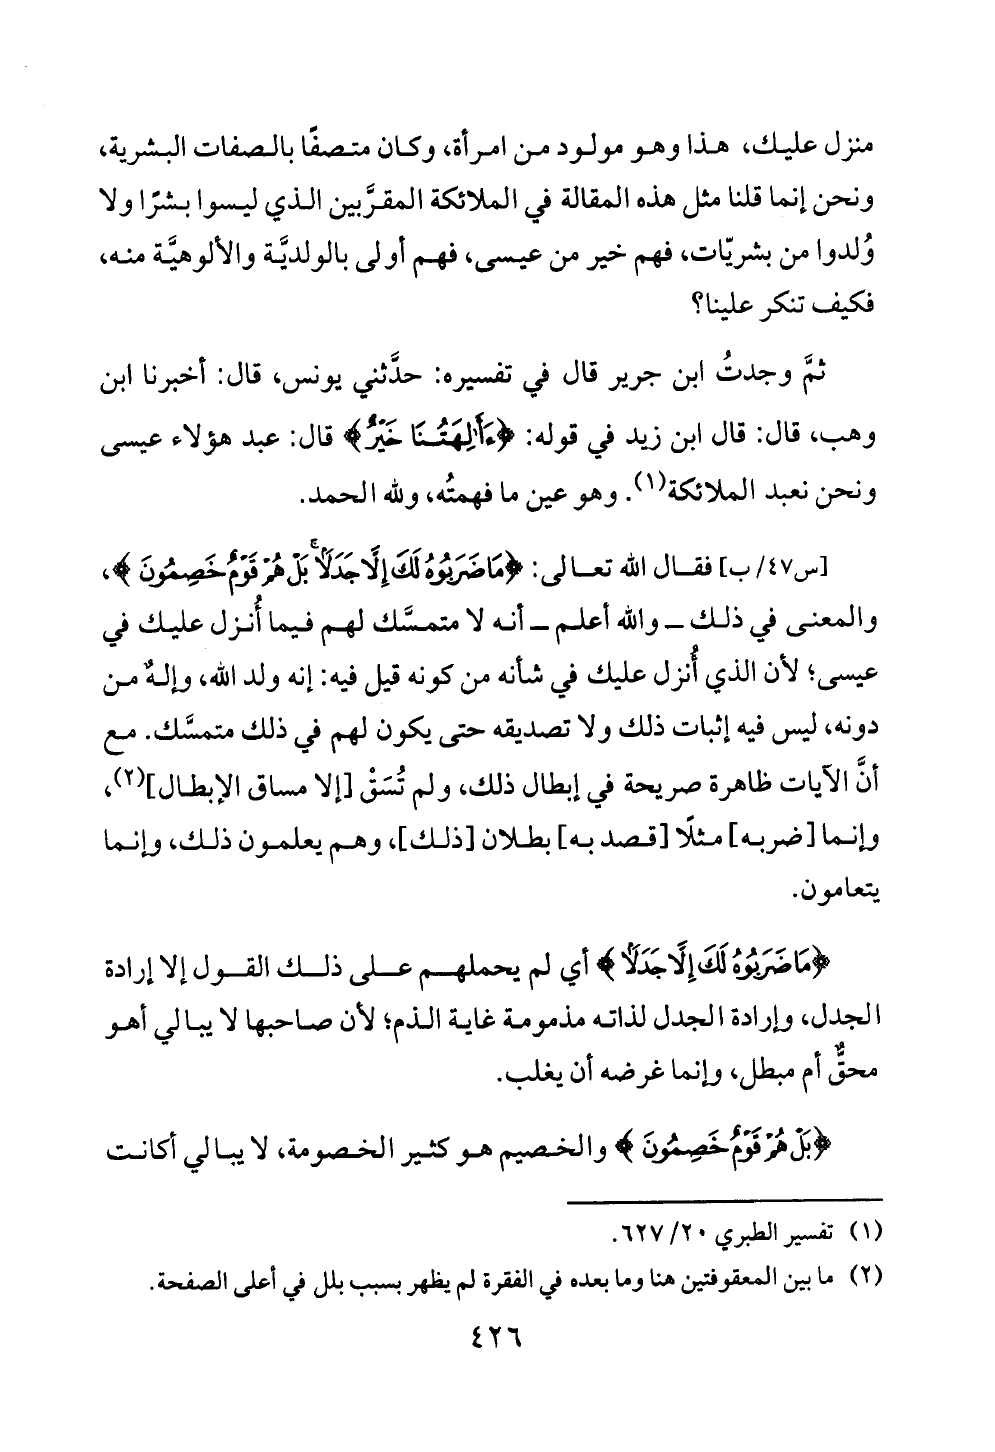 منزل عليك، هذا وهو مولود من امرأة، وكان متصفًا بالصفات البشرية،
ونحن إنما قلنا مثل هذه المقالة في الملائكة المقرَّبين الذي ليسوا بشرًا ولا
وُلدوا من بشريّات، فهم خير من عيسى، فهم أولى بالولديَّة والألوهيَّة منه،
فكيف تنكر علينا؟
ثمَّ وجدتُ ابن جرير قال في تفسيره: حدَّثني يونس، قال: أخبرنا ابن
وهب، قال: قال ابن زيد في قوله: ﴿ءَأَٰلِهَتُنَا خَيْرٌ﴾ قال: عبد هؤلاء عيسى
ونحن نعبد الملائكة(١). وهو عين ما فهمتُه، ولله الحمد.
[س٤٧/ ب] فقال الله تعالى: ﴿مَا ضَرَبُوهُ لَكَ إِلَّا جَدَلًاۢ ۚ بَلْ هُمْ قَوْمٌ خَصِمُونَ﴾،
والمعنى في ذلك ـ والله أعلم ـ أنه لا متمسَّك لهم فيما أُنزل عليك في
عيسى؛ لأن الذي أُنزل عليك في شأنه من كونه قيل فيه: إنه ولد الله، وإلهٌ من
دونه، ليس فيه إثبات ذلك ولا تصديقه حتى يكون لهم في ذلك متمسَّك. مع
أنَّ الآيات ظاهرة صريحة في إبطال ذلك، ولم تُسَقْ [إلا مساق الإبطال](٢)،
وإنما [ضربه] مثلًا [قصد به] بطلان [ذلك]، وهم يعلمون ذلك، وإنما
يتعامون.
﴿مَا ضَرَبُوهُ لَكَ إِلَّا جَدَلًاۢ﴾ أي لم يحملهم على ذلك القول إلا إرادة
الجدل، وإرادة الجدل لذاته مذمومة غاية الذم؛ لأن صاحبها لا يبالي أهو
محقٌّ أم مبطل، وإنما غرضه أن يغلب.
﴿بَلْ هُمْ قَوْمٌ خَصِمُونَ﴾ والخصيم هو كثير الخصومة، لا يبالي أكانت
(١) تفسير الطبري ٢٠/ ٦٢٧.
(٢) ما بين المعقوفتين هنا وما بعده في الفقرة لم يظهر بسبب بلل في أعلى الصفحة.
٤٢٦